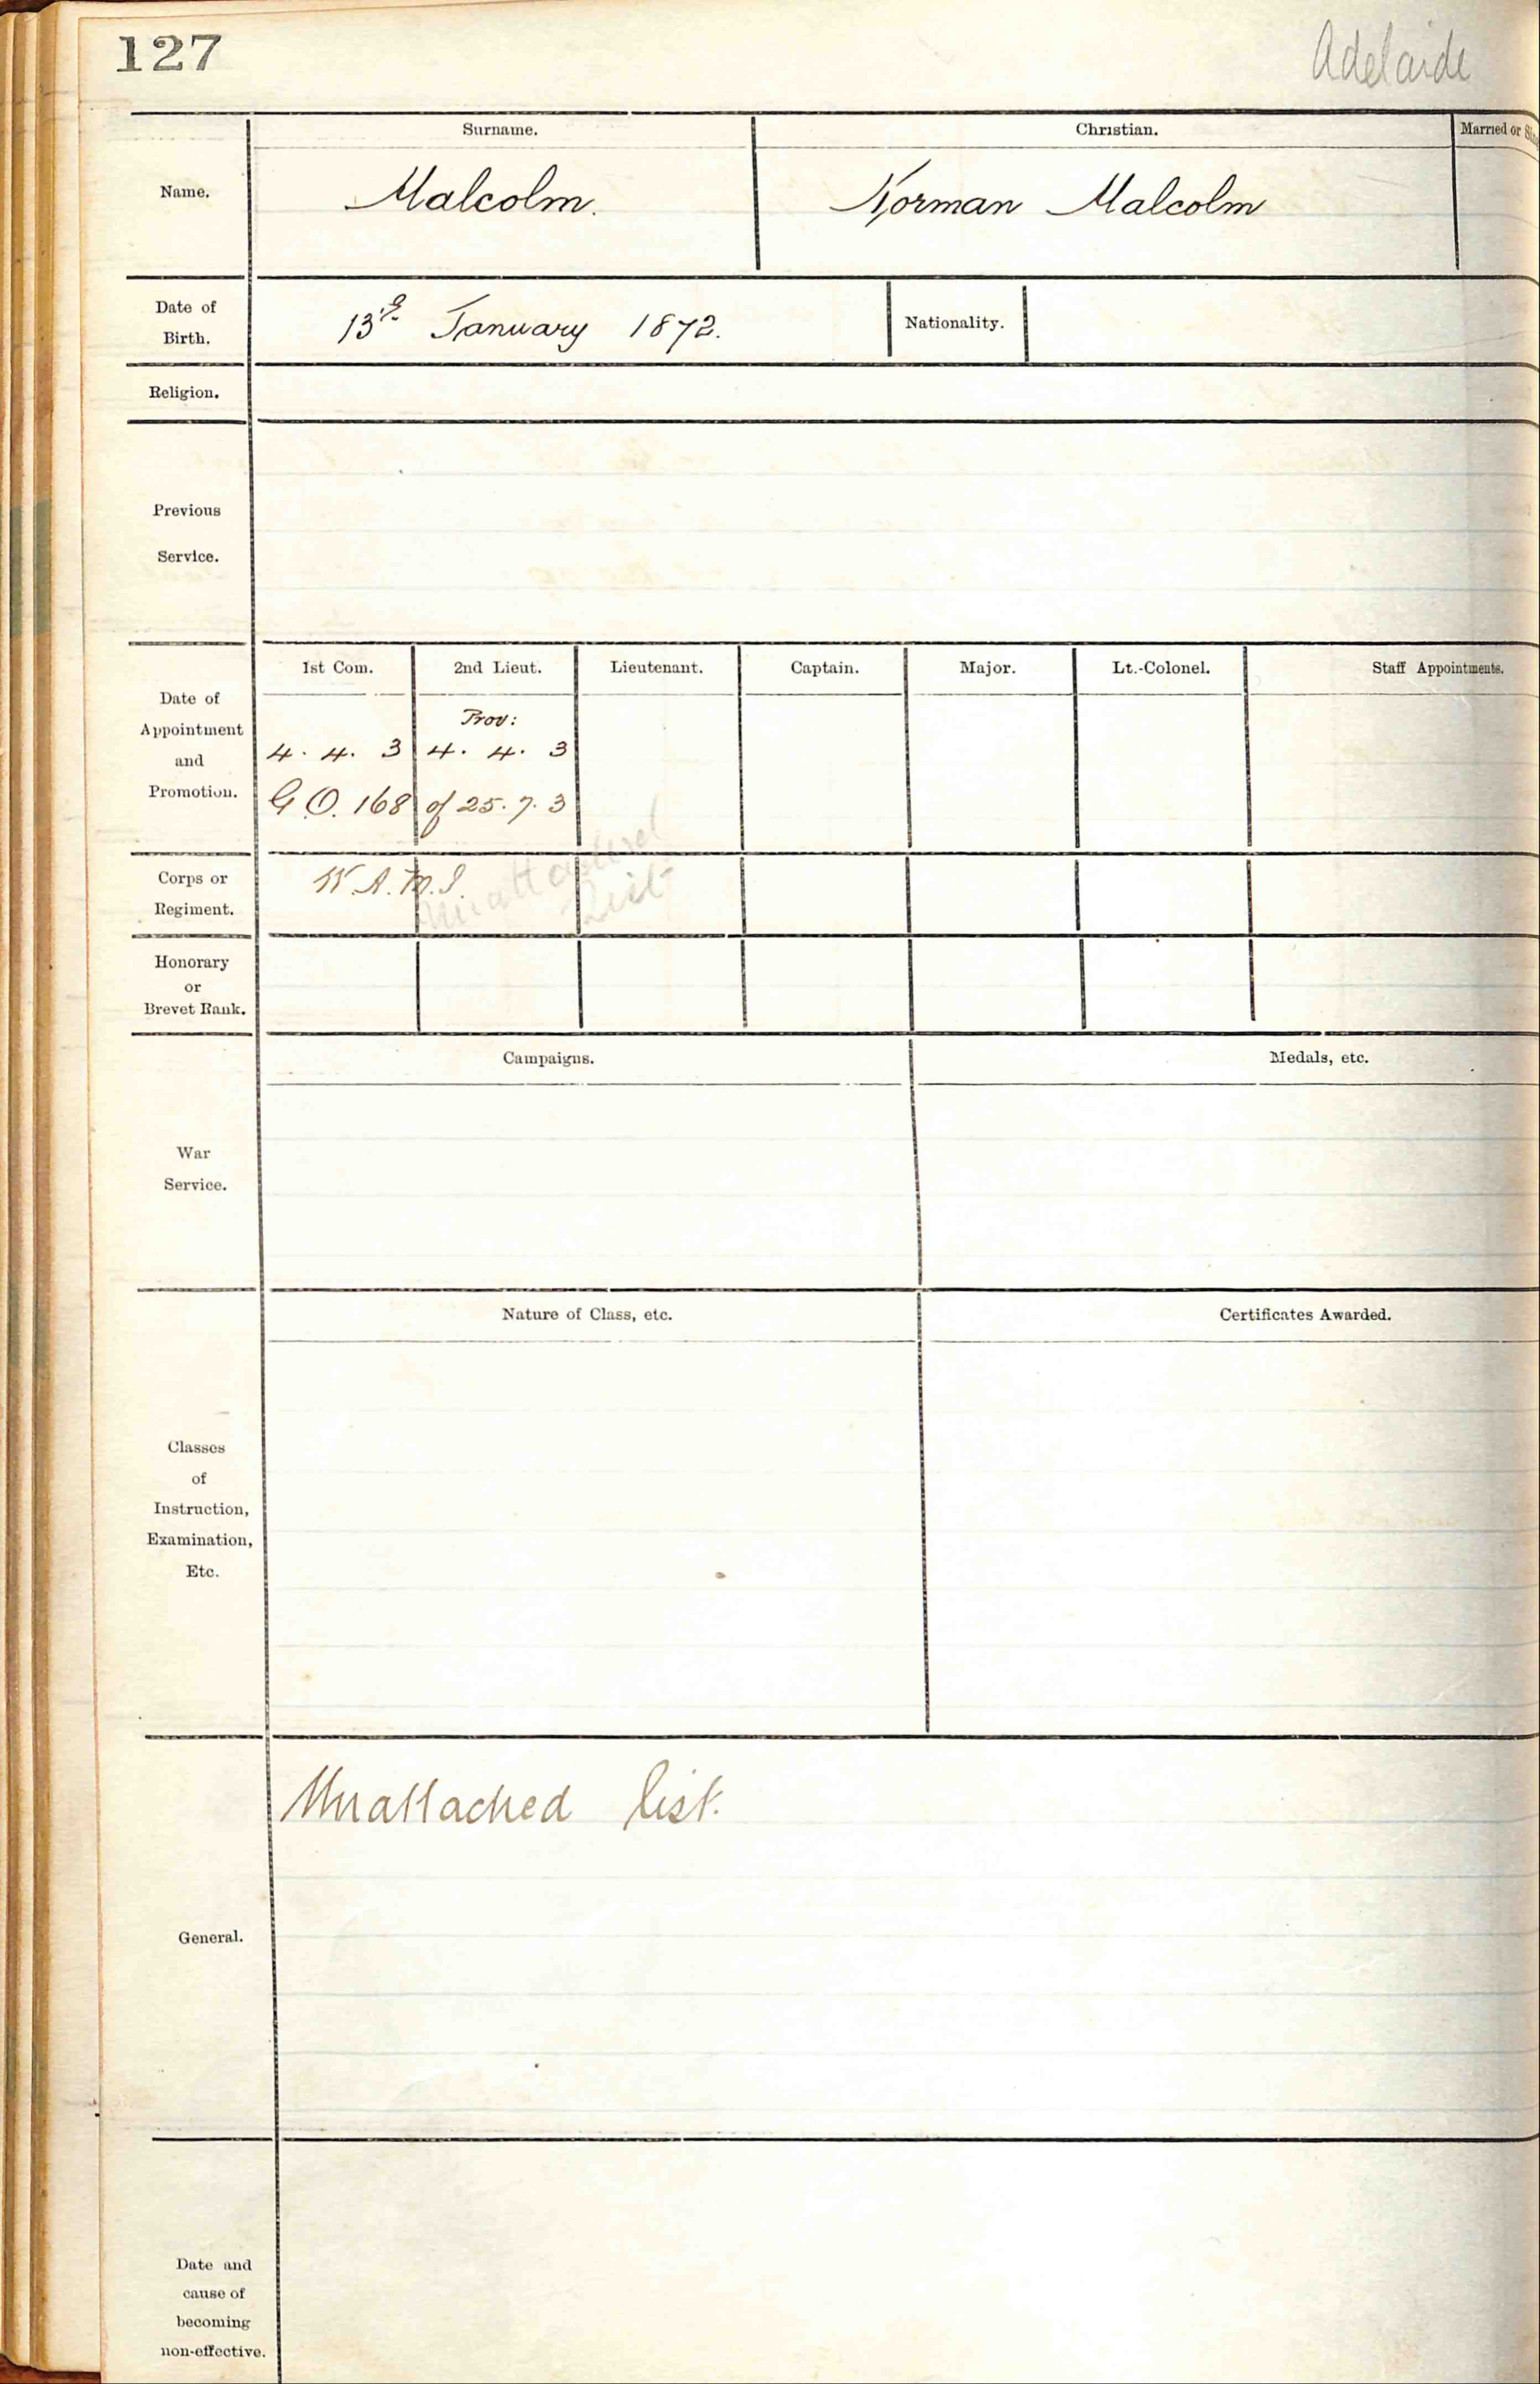 127
Adelaide
Surname. Christian. Married or
Name. Malcolm. Norman Malcolm
Date of Birth. 13th January 1872. Nationality.
Religion.
Previous
Service.
1st Com. 2nd Lieut. Lieutenant. Captain. Major. Lt.-Colonel. Staff Appointments.
Date of
Appointment
and
Promotion.
Prov:
4. 4. 3 4. 4. 3
G.O. 168 of 25. 7. 3
Corps or
Regiment.
W.A.M.I.
Unattached
List
Honorary
or
Brevet Rank.
Campaigns. Medals, etc.
War
Service.
Nature of Class, etc. Certificates Awarded.
Classes
of
Instruction,
Examination,
Etc.
Unattached list.
General.
Date and
cause of
becoming
non-effective.